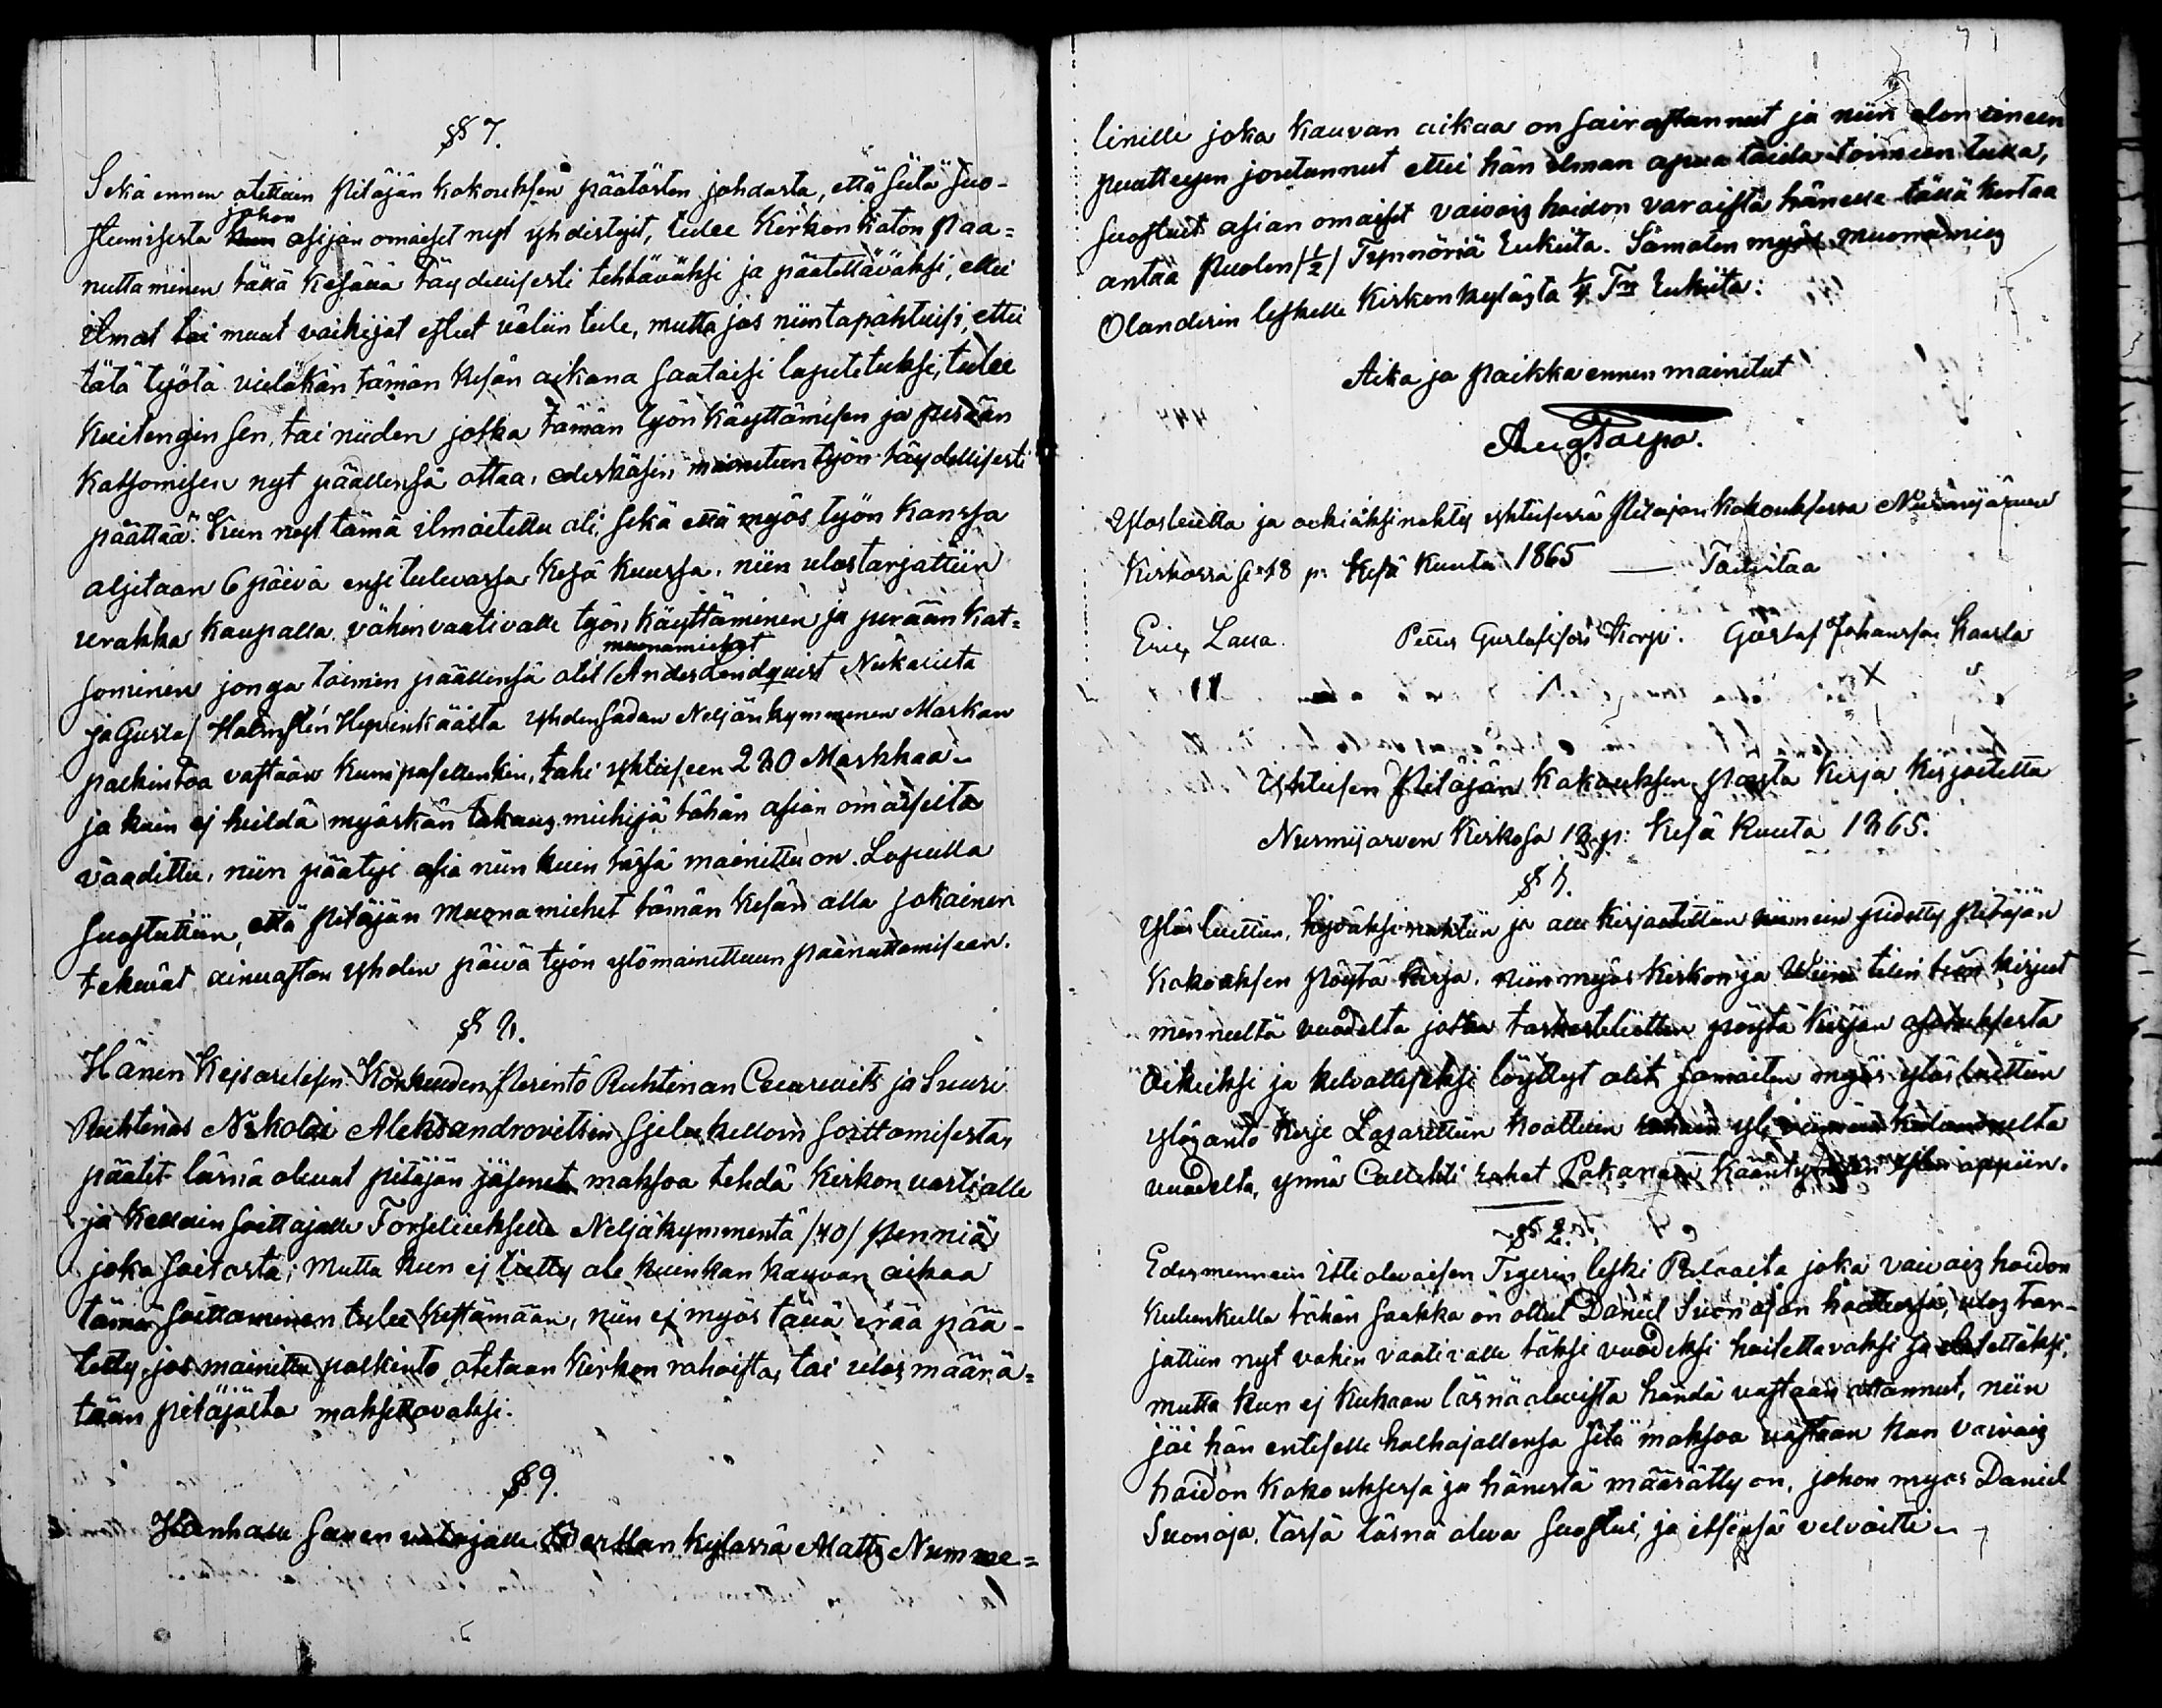 §§ 7.
Sekä ennen otettuin Pitäjän kokouksen päätösten johdosta, että siitä suo-
stumisesta johon asijan omaiset nyt yhdistyit, tulee Kirkon katon Paa=
nuttaminen tällä kesällä täydellisesti tehtäväksi ja päätettäväksi, ellei
ilmat tai muut vaikijat esteet väliin tule, mutta jos niin tapahtuisi, ettei
tätä työtä vieläkän tämän kesän aikana saataisi loputetuksi, tulee
kuitengin sen, tai niiden jotka tämän työn käyttämisen ja perään
katsomisen nyt päällensä ottaa, edeskäsin mainitun työn täydellisesti
päättää. Kun nyt tämä ilmoitettu oli, sekä että myös työn kanssa
aljetaan 6 päivä ensi tulevassa Kesä kuussa, niin ulostarjottiin
urakka kaupalla vähin vaativalle työn käyttäminen ja perään kat=
sominen jonga toimen päällensä otit muonamiehet Anders Lindqvist Nukarista
ja Gustaf Holmstén Hyvinkäältä yhdensadan Neljänkymmenen Markan
palkintoa vastaan kumpasellenkin, tahi yhteiseen 280 Markkaa
ja kuin ej heildä myöskän takaus miehijä tähän asian omaisilta
vaadittu, niin päätyi asia niin kuin tässä mainittu on. Lopulla
suostuttiin, että Pitäjän Muonamiehet tämän kesän alla jokainen
tekevät ainuastan yhden päivä työn ylömainittuun paanuttamiseen.
§ 8.
Hänen Keisarillisen Korkeuden Perintö Ruhtinan Cesarevits ja Suuri
Ruhtinas Nikolai Aleksandrovitsin sielu kelloin soittamisesta,
päätit läsnä olevat pitäjän jäsenet maksoa tehdä Kirkon vartialle
ja Kelloin soittajalle Forseliukselle Neljäkymmentä /40/ Penniä
joka soitosta; Mutta kun ej tietty ole kuinkan kauvan aikaa
tämä soittaminen tulee kestämään, niin ej myös tällä erää pää-
tetty, jos mainittu palkinto otetaan Kirkon rahoista, tai ulos määrä=
tään pitäjältä maksettavaksi.
§ 9.
Wanhalle sanen valajalle Perttan kylässä Matts Numme=
linille joka kauvan aikaa on sairastannut ja niin olon eineen
puutteesen joutunnut ettei hän ilman apua taida toimeen tulla,
suostuit asian omaiset vaivais hoidon varaista hänelle tällä kertaa
antaa Puolen /½/ Tynnöriä Rukiita. Sämaten myös muonamies
Olanderin leskelle Kirkonkylästä ¼ Tn Rukiita:
Aika ja paikka ennen mainitut
Aug. Taipa.
Ylösluettu ja oikiaksi nähty yhteisessä Pitäjän Kokouksessa Nurmijärven
Kirkossa se 18 p: Kesä Kuuta 1865 — Todistaa
Eric Lassa. Petter Gustafsson Korpi. Gustaf Johansson Kaarla
Yhteisen Pitäjän Kokouksen Pöytä kirja kirjoitettu
Nurmijärven Kirkosa 18 p: Kesä Kuuta 1865.
§ 1.
Ylös luettiin, hyväksi nähtiin ja alle kirjoitettiin viimein pidetty Pitäjän
Kokouksen Pöytä kirja, niin myös Kirkon ja Wiini tilin kirjeet
menneeltä vuodelta jotka tarkasteltiin pöytä kirjan
Oikeiksi ja kelvollisiksi löyttyt olit, samaten myös ylös luettiin
ylösanto kirje Lazarettiin koottuin
vuodelta, ynnä Collekti rahat Pakanain kääntymisen appiin.
§ 2.
Edesmenneen Itellisen Tigerin leski Palaaita joka vaivais hoidon
kulunkilla tähän saakka on ollut Daniel Suonojan hoitossa, ulos tar-
jottiin nyt vähin vaativalle täksi vuodeksi hoitettavaksi ja elätettäksi,
mutta kun ej kukaan läsnä olevista händä vastaan ottannut, niin
jäi hän entiselle holhojallensa sitä maksoa vastaan kun vaivais
hoidon kokouksessa ja hänestä määrätty on, johon myös Daniel
Suonoja, tässä läsnä oleva suostui, ja itsensä velvoitti